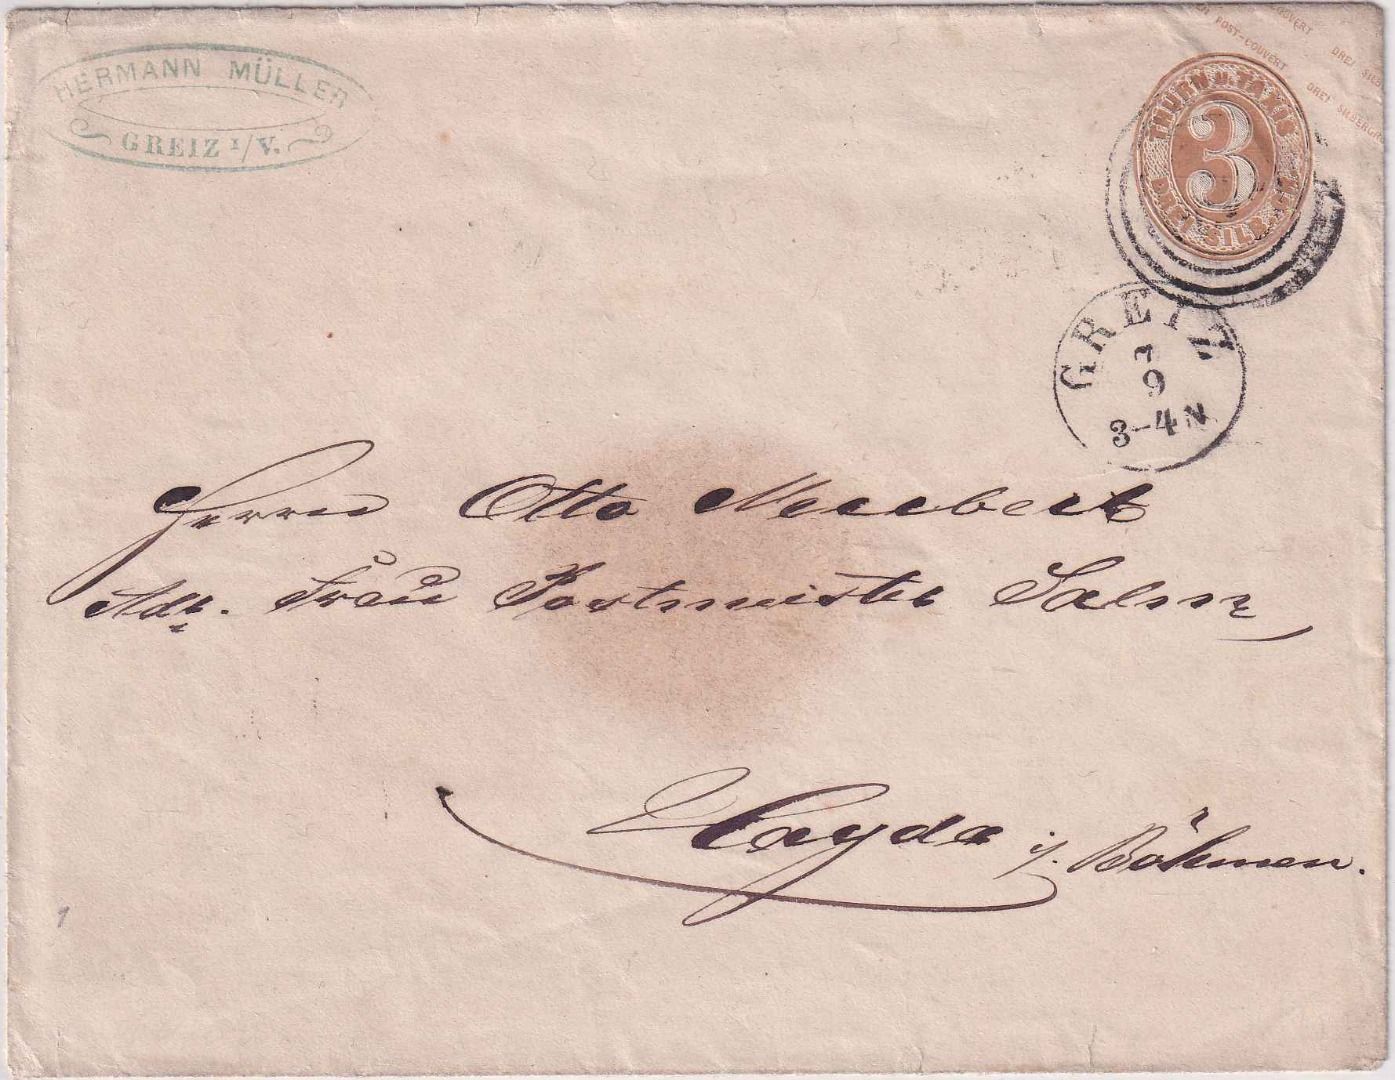 HERMANN MÜLLER
GREIZ I/V.
POST-COUVERT DREI
DREI SILBERGR
THURN u. TAXIS
3
DREI SILB. GR.
GREIZ
7
9
3-4 N
Herrn Otto
Adr. Frau Postmeister Salm
Hayda i/ Böhmen.
1